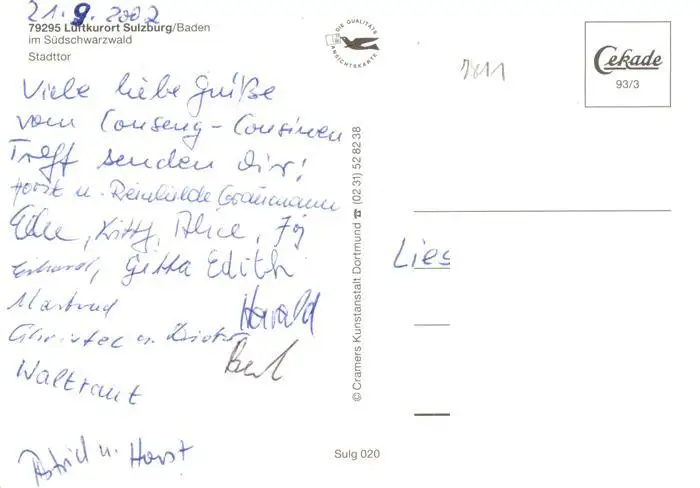 21.9.2002
79295 Luftkurort Sulzburg/Baden
im Südschwarzwald
Stadttor
DIE QUALITÄTS
ANSICHTSKARTE
7811
Cekade
93/3
Viele liebe Grüße
vom Couseng-Cousinen
Treff senden dir!
Horst u. Reinhilde Graumann
Kitty, Alice,
Erhard, Gitta Edith
Harald
Christel u. Dieter
Waltraut
Astrid u. Horst
© Cramers Kunstanstalt Dortmund ☎ (02 31) 52 82 38
Lies
Sulg 020